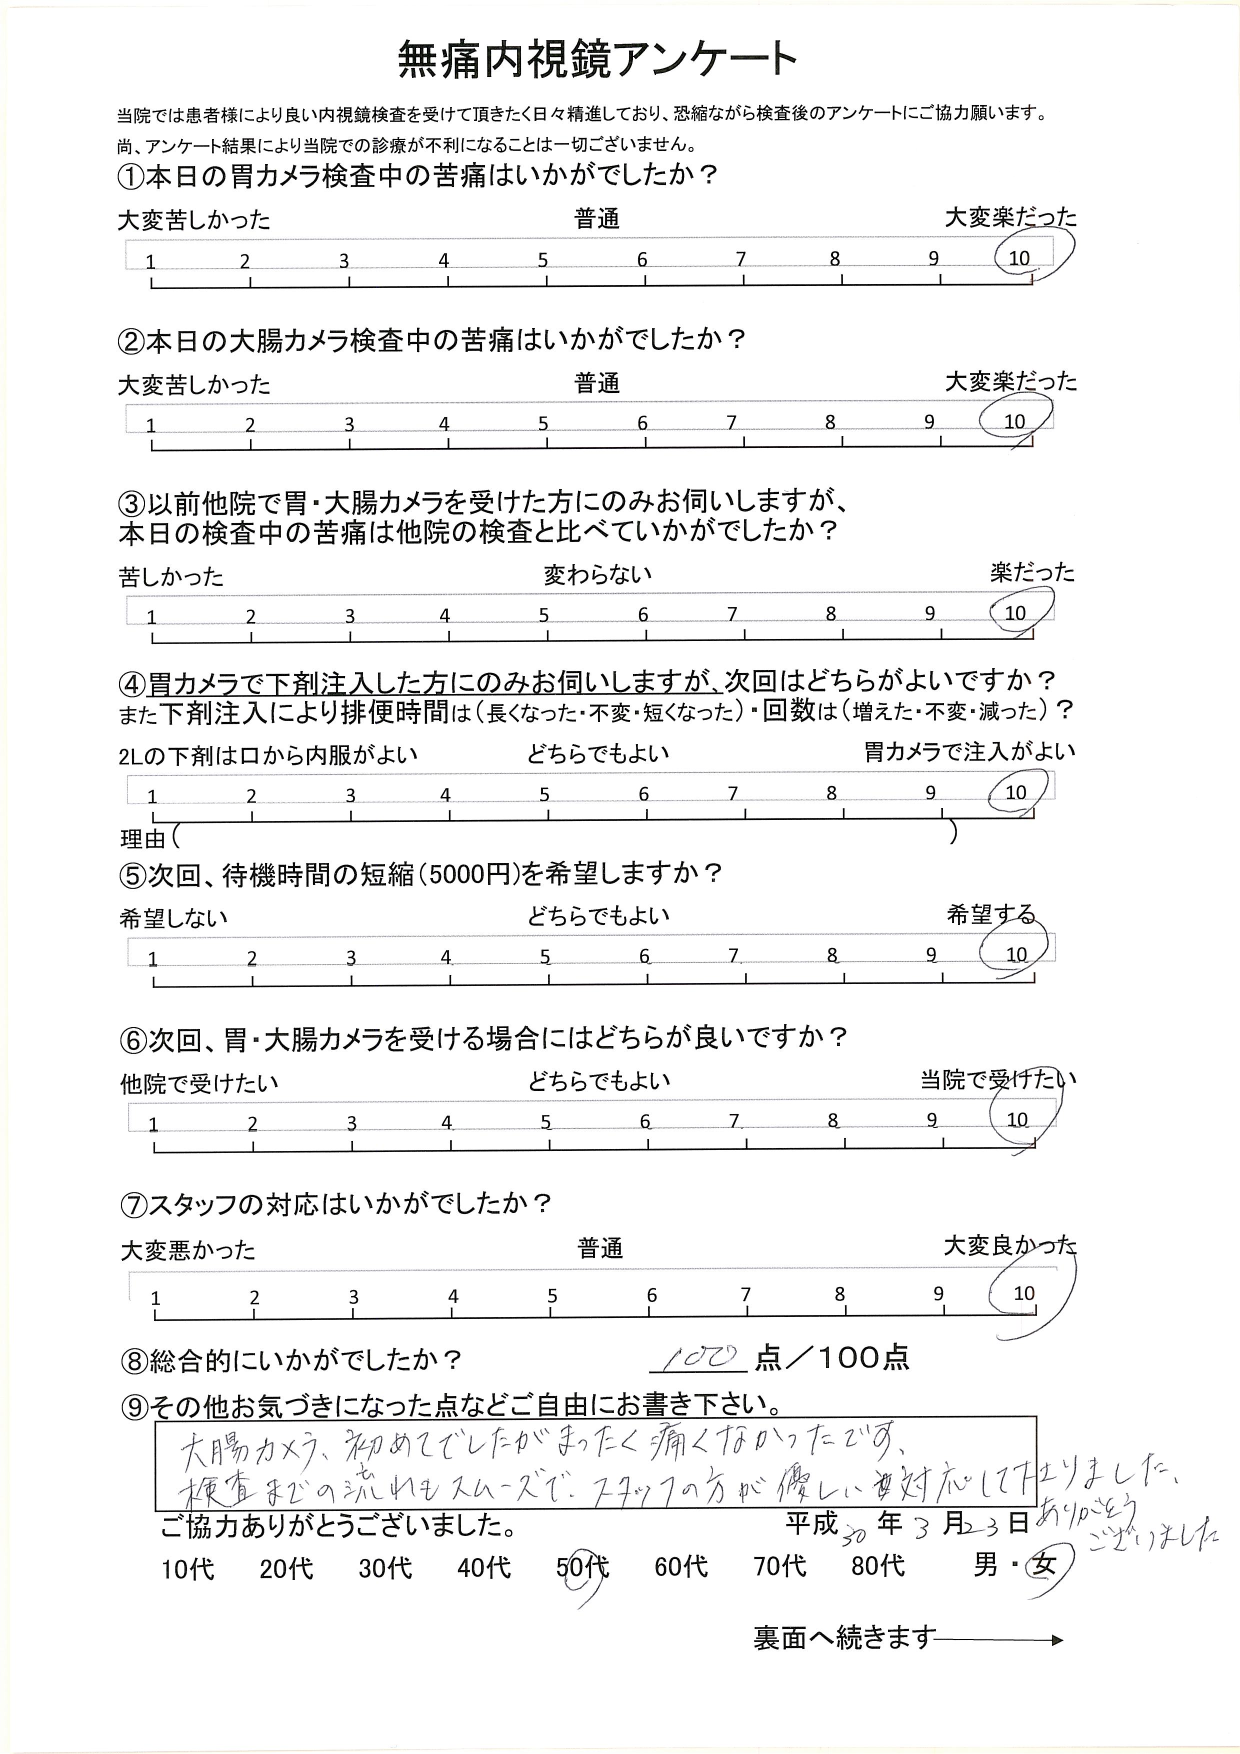 無痛内視鏡アンケート
当院では患者様により良い内視鏡検査を受けて頂きたく日々精進しており、恐縮ながら検査後のアンケートにご協力願います。
尚、アンケート結果により当院での診療が不利になることは一切ございません。
①本日の胃カメラ検査中の苦痛はいかがでしたか？
大変苦しかった 普通 大変楽だった
1 2 3 4 5 6 7 8 9 10
②本日の大腸カメラ検査中の苦痛はいかがでしたか？
大変苦しかった 普通 大変楽だった
1 2 3 4 5 6 7 8 9 10
③以前他院で胃・大腸カメラを受けた方にのみお伺いしますが、
本日の検査中の苦痛は他院の検査と比べていかがでしたか？
苦しかった 変わらない 楽だった
1 2 3 4 5 6 7 8 9 10
④胃カメラで下剤注入した方にのみお伺いしますが、次回はどちらがよいですか？
また下剤注入により排便時間は（長くなった・不変・短くなった）・回数は（増えた・不変・減った）？
2Lの下剤は口から内服がよい どちらでもよい 胃カメラで注入がよい
1 2 3 4 5 6 7 8 9 10
理由（ ）
⑤次回、待機時間の短縮（5000円）を希望しますか？
希望しない どちらでもよい 希望する
1 2 3 4 5 6 7 8 9 10
⑥次回、胃・大腸カメラを受ける場合にはどちらが良いですか？
他院で受けたい どちらでもよい 当院で受けたい
1 2 3 4 5 6 7 8 9 10
⑦スタッフの対応はいかがでしたか？
大変悪かった 普通 大変良かった
1 2 3 4 5 6 7 8 9 10
⑧総合的にいかがでしたか？ 100 点／100点
⑨その他お気づきになった点などご自由にお書き下さい。
大腸カメラ、初めてでしたがまったく痛くなかったです、
検査までの流れもスムーズで、スタッフの方が優しい対応して下さりました、
ありがとう
ございました
ご協力ありがとうございました。 平成30年3月23日
10代 20代 30代 40代 50代 60代 70代 80代 男・女
裏面へ続きます